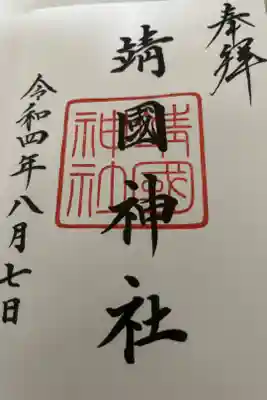 奉拝
靖國神社
靖國
神社
令和四年八月七日